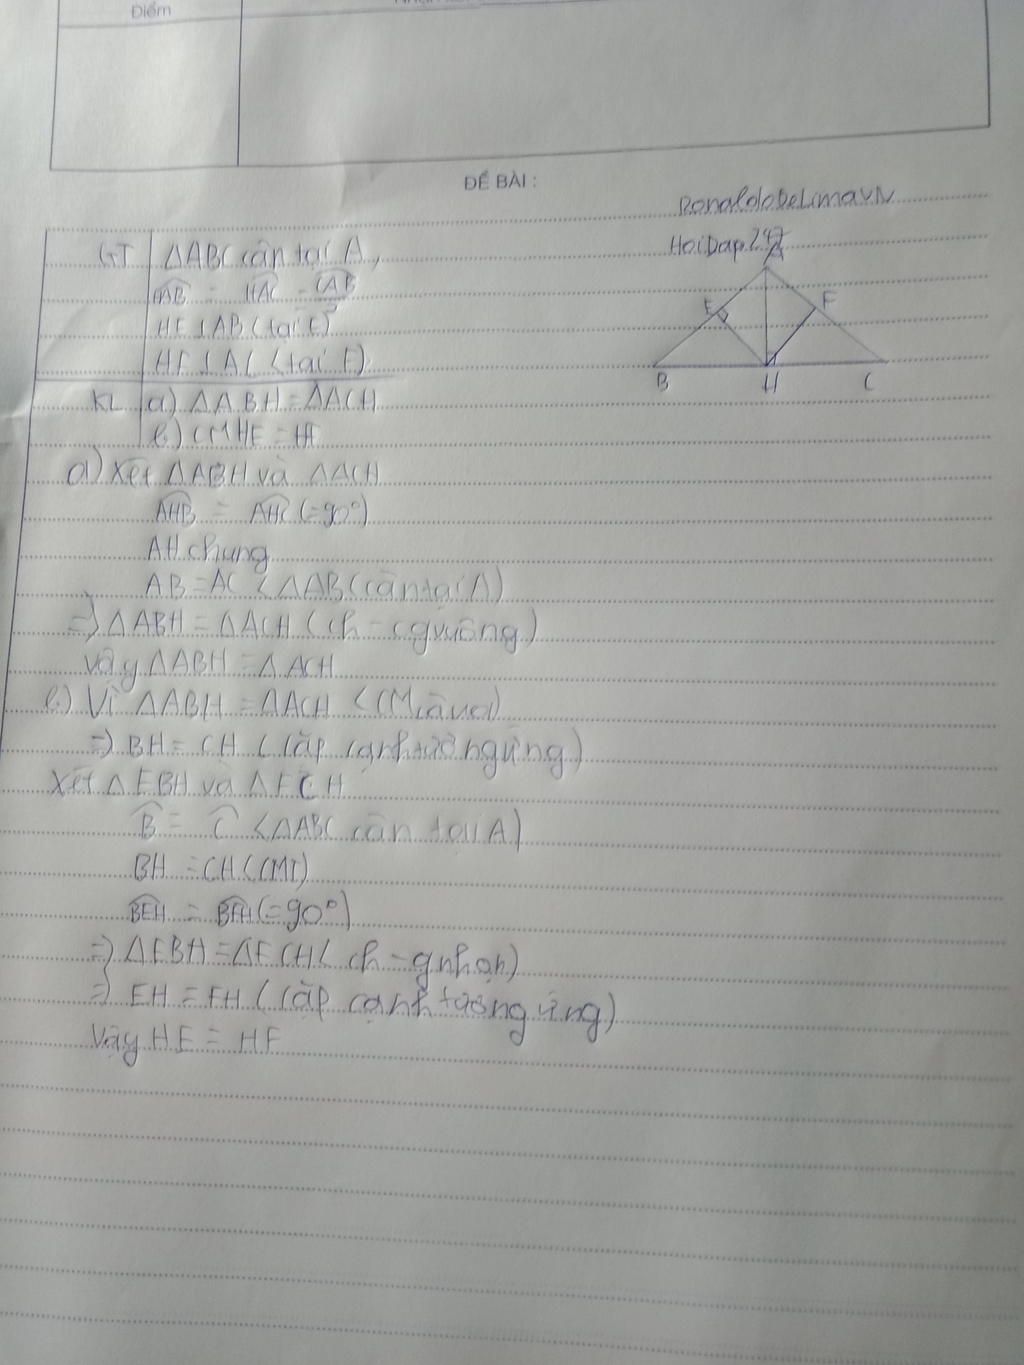 Điểm
ĐỀ BÀI :
RonaldoDeLimaVN
HoiDap247
GT ΔABC cân tại A,
HAB = HAC = CAB/2
HE ⊥ AB (tại E)
HF ⊥ AC (tại F)
KL a) ΔABH = ΔACH
b) CM HE = HF
A
E F
B H C
a) Xét ΔABH và ΔACH
AHB = AHC (=90°)
AH chung
AB = AC (ΔABC cân tại A)
=> ΔABH = ΔACH (ch - cgvuông)
vậy ΔABH = ΔACH
b) Vì ΔABH = ΔACH (CM câu a)
=> BH = CH (cặp cạnh tương ứng)
Xét ΔEBH và ΔFCH
B = C (ΔABC cân tại A)
BH = CH (CMT)
BEH = BFH (=90°)
=> ΔEBH = ΔFCH (ch - gnhọn)
=> EH = FH (cặp cạnh tương ứng)
Vậy HE = HF